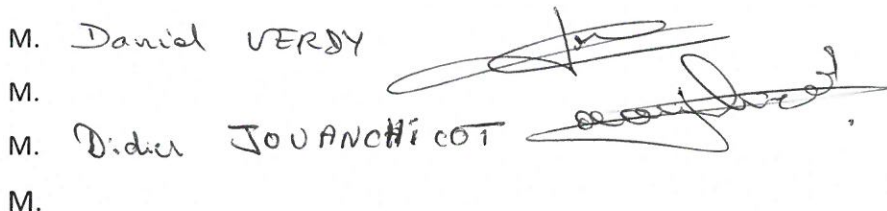 M. Daniel VERDY
M.
M. Didier JOUANCHICOT
M.